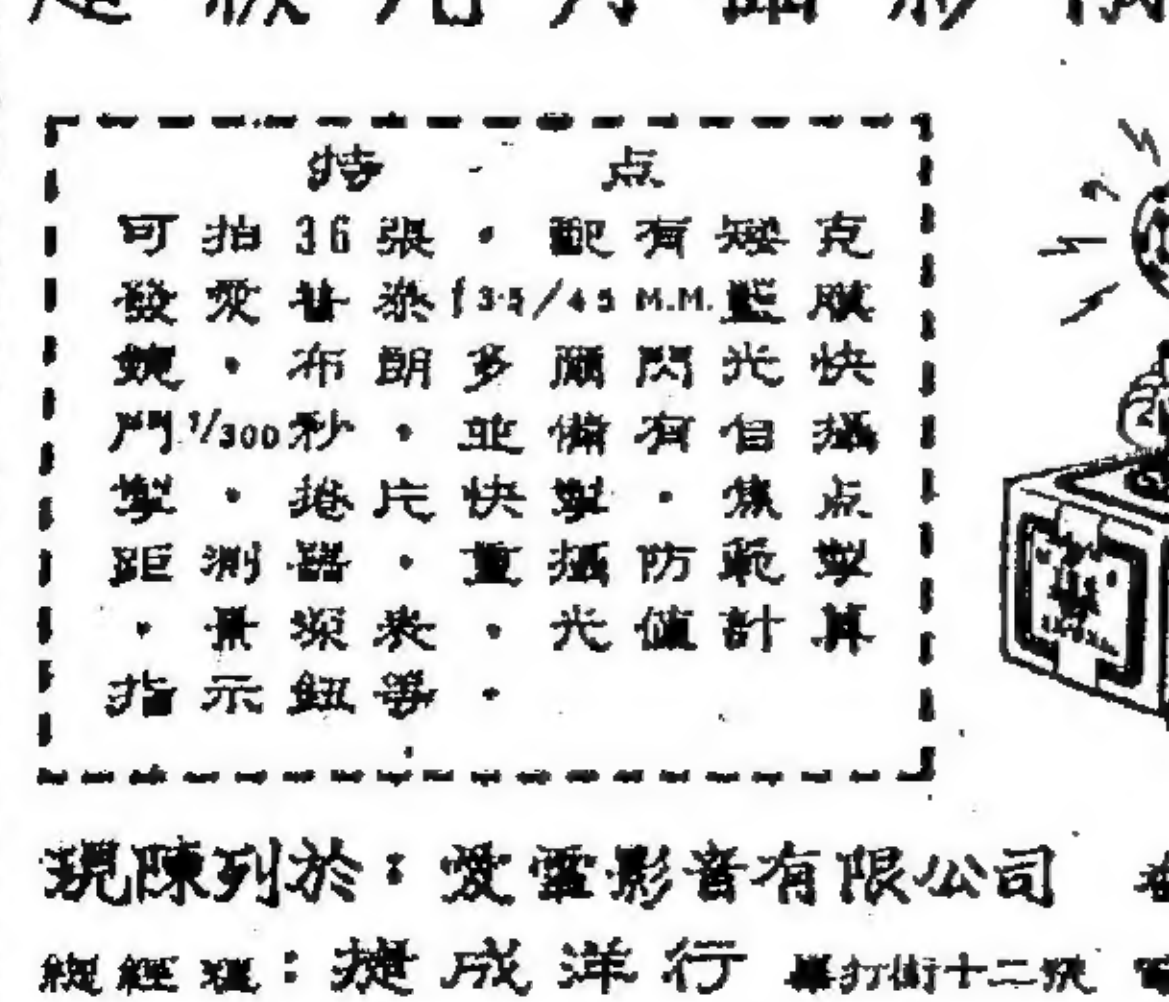 超級九月晶影機
特 点
可拍36張・配有矮克
發愛普泰f3·5/45 M.M.藍膜
鏡・布朗多爾閃光快
門1/300秒・並備有自攝
掣・捲片快掣・焦点
距測器・重攝防範掣
・景深表・光值計算
指示鈕等・
現陳列於：愛雷影音有限公司
總經理：捷成洋行 畢打街十二號 電